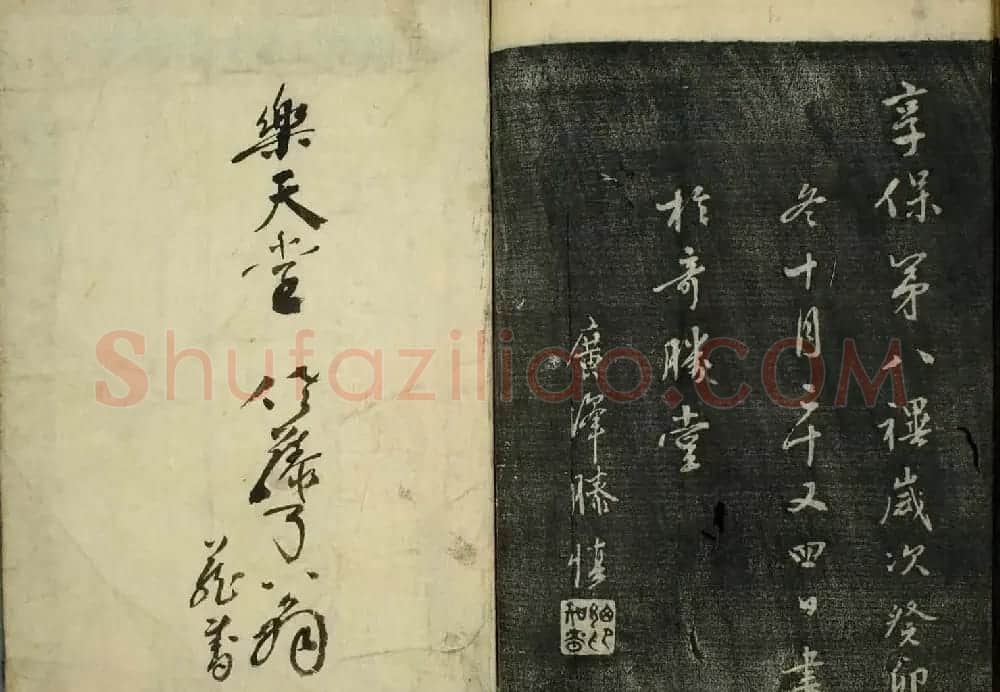 享保第八禩歲次癸卯
冬十月二十又四日書
於奇勝堂
廣澤滕慎
樂天堂 藤了八翁
藏書
Shufaziliao.COM